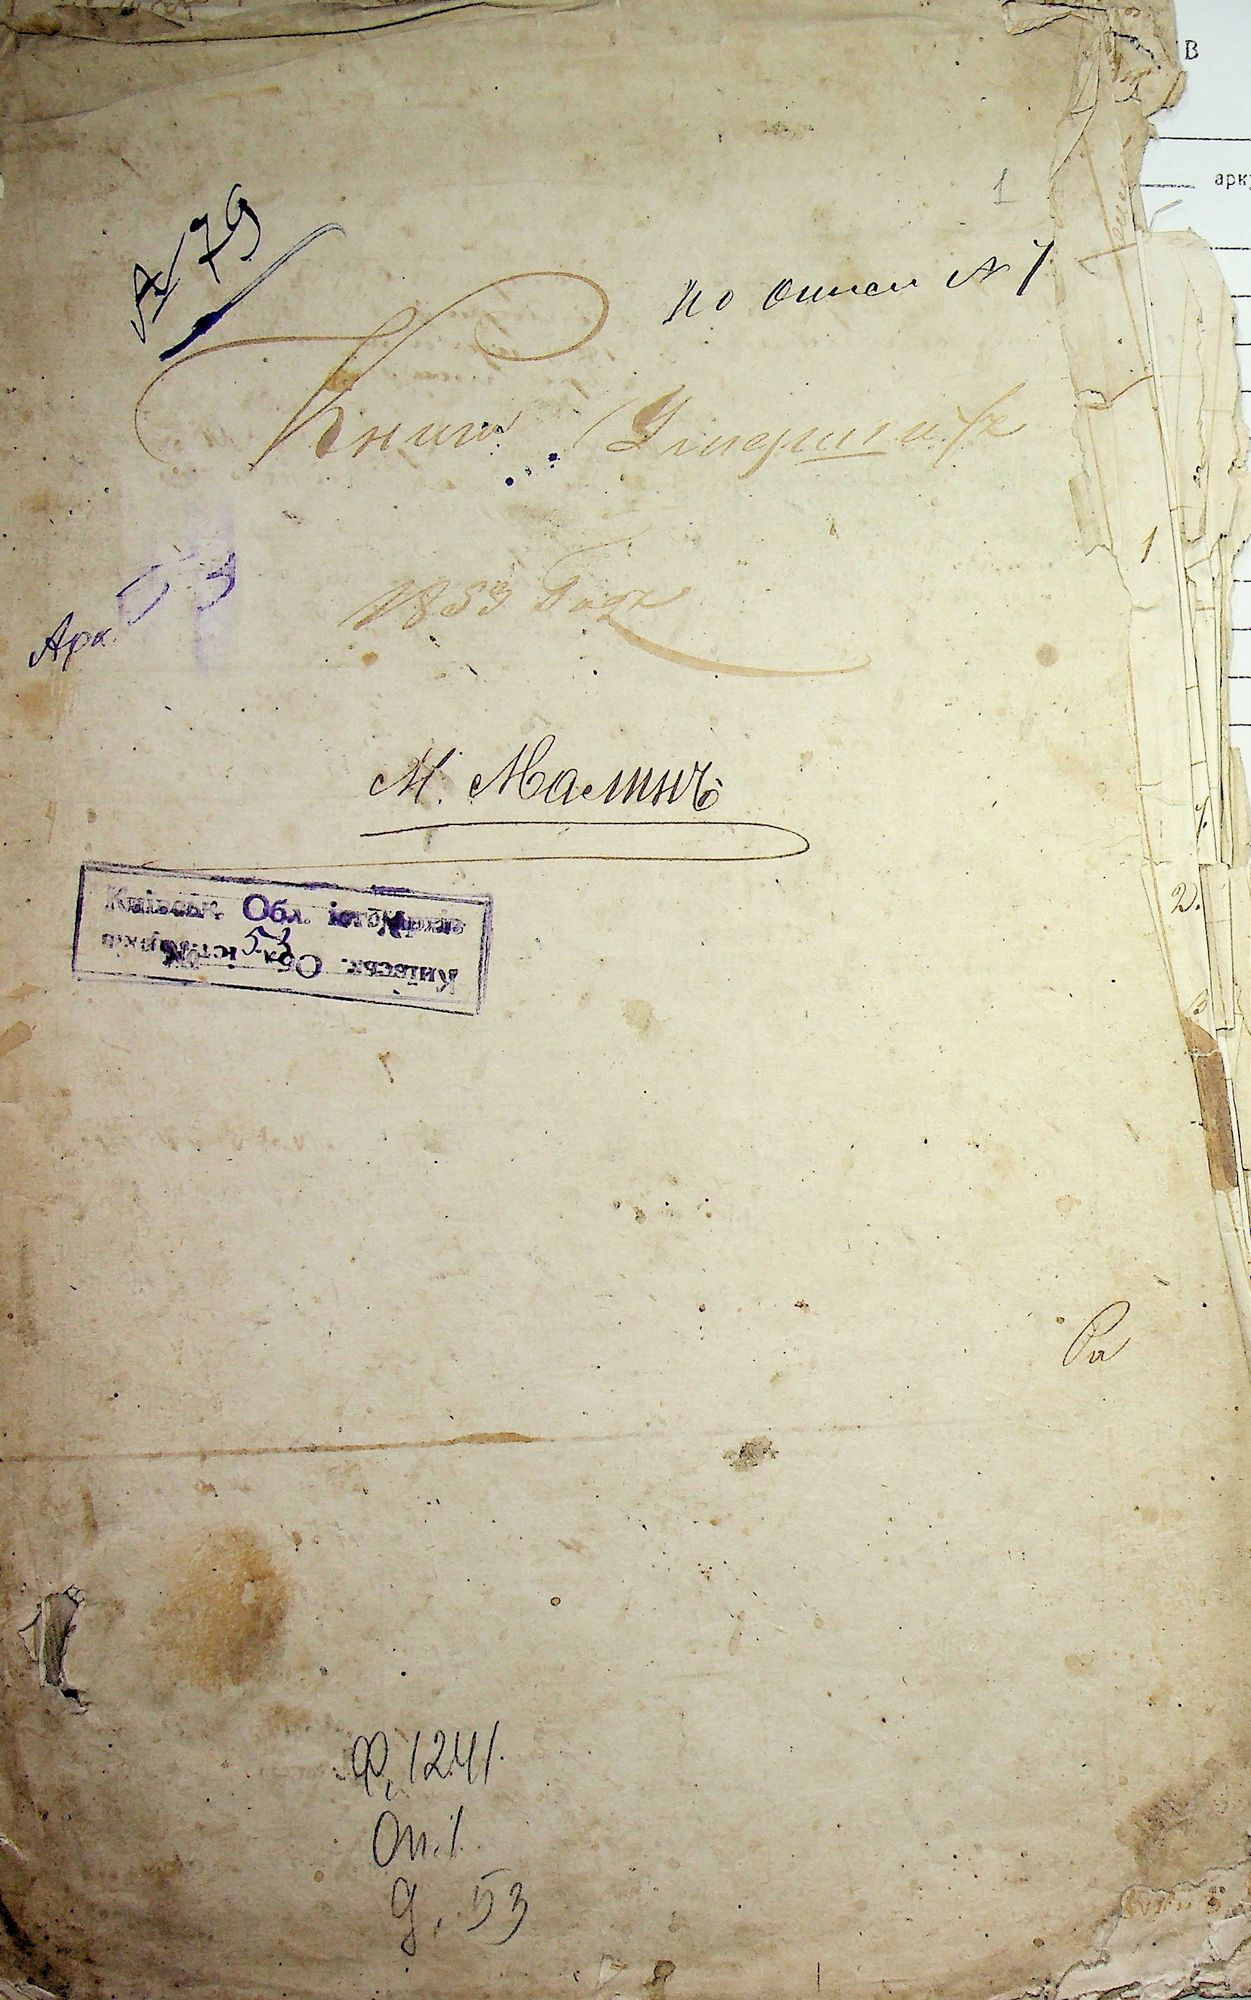 В
арк
1
№ 79
по описи № 7
Книга Умершихъ
1
1853 Года
Арх.
М. Малинъ
2.
Київськ. Обл. істор.
Київськ. Обл. істор.
53
Ра
Ф. 1241.
Оп. 1.
д. 53